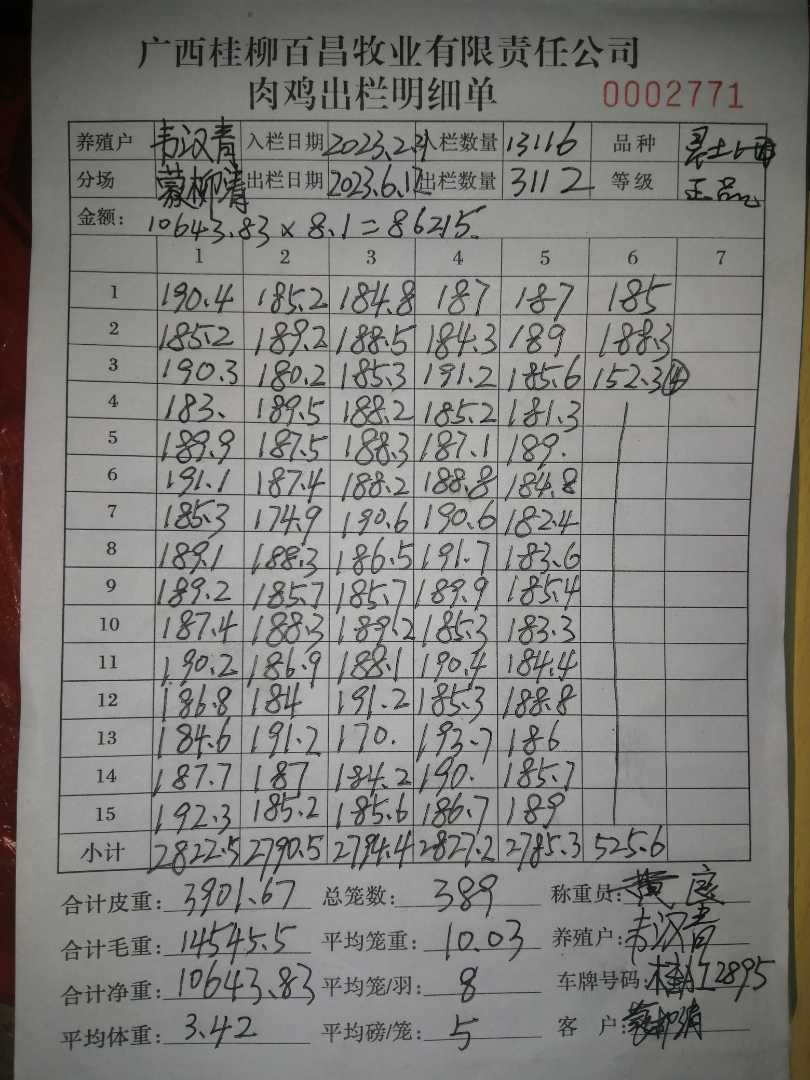 广西桂柳百昌牧业有限责任公司
肉鸡出栏明细单 0002771
养殖户 韦汉青 入栏日期 2023.2.21 入栏数量 13116 品种
分场 蒙柳清 出栏日期 2023.6.12 出栏数量 3112 等级 正品
金额: 10643.83 × 8.1 = 86215.
1 2 3 4 5 6 7
1 190.4 185.2 184.8 187 187 185
2 185.2 189.2 188.5 184.3 189 188.3
3 190.3 180.2 185.3 191.2 185.6 152.3 ④
4 183. 189.5 188.2 185.2 181.3
5 189.9 187.5 188.3 187.1 189.
6 191.1 187.4 188.2 188.8 184.8
7 185.3 174.9 190.6 190.6 182.4
8 189.1 188.3 186.5 191.7 183.6
9 189.2 185.7 185.7 189.9 185.4
10 187.4 188.3 189.2 185.3 183.3
11 190.2 186.9 188.1 190.4 184.4
12 186.8 184 191.2 185.3 188.8
13 184.6 191.2 170. 193.7 186
14 187.7 187 184.2 190. 185.7
15 192.3 185.2 185.6 186.7 189
小计 2822.5 2790.5 2794.4 2827.2 2785.3 525.6
合计皮重: 3901.67 总笼数: 389 称重员: 黄良
合计毛重: 14545.5 平均笼重: 10.03 养殖户: 韦汉青
合计净重: 10643.83 平均笼/羽: 8 车牌号码: 2895
平均体重: 3.42 平均磅/笼: 5 客户: 蒙柳清